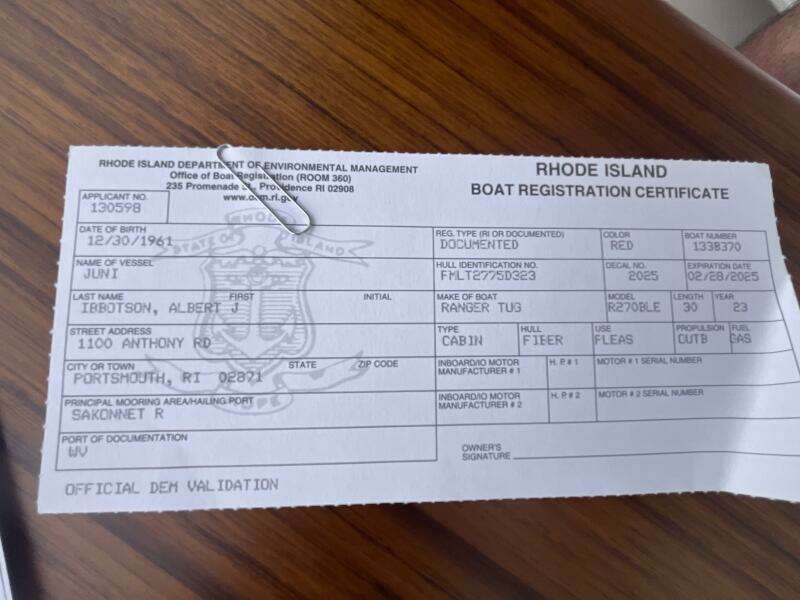 RHODE ISLAND DEPARTMENT OF ENVIRONMENTAL MANAGEMENT
Office of Boat Registration (ROOM 360)
235 Promenade St., Providence RI 02908
www.dem.ri.gov
RHODE ISLAND
BOAT REGISTRATION CERTIFICATE
APPLICANT NO.
130598
DATE OF BIRTH
12/30/1961
REG. TYPE (RI OR DOCUMENTED) COLOR BOAT NUMBER
DOCUMENTED RED 1338370
NAME OF VESSEL
JUNI
HULL IDENTIFICATION NO. DECAL NO. EXPIRATION DATE
FMLT2775D323 2025 02/28/2025
LAST NAME FIRST INITIAL
IBBOTSON, ALBERT J
MAKE OF BOAT MODEL LENGTH YEAR
RANGER TUG R270BLE 30 23
STREET ADDRESS
1100 ANTHONY RD
TYPE HULL USE PROPULSION FUEL
CABIN FIBER PLEAS OUTB GAS
CITY OR TOWN STATE ZIP CODE
PORTSMOUTH, RI 02871
INBOARD/IO MOTOR MANUFACTURER # 1 H. P. # 1 MOTOR # 1 SERIAL NUMBER
PRINCIPAL MOORING AREA/HAILING PORT
SAKONNET R
INBOARD/IO MOTOR MANUFACTURER # 2 H. P. # 2 MOTOR # 2 SERIAL NUMBER
PORT OF DOCUMENTATION
WV
OWNER'S
SIGNATURE
OFFICIAL DEM VALIDATION
STATE OF RHODE ISLAND
HOPE